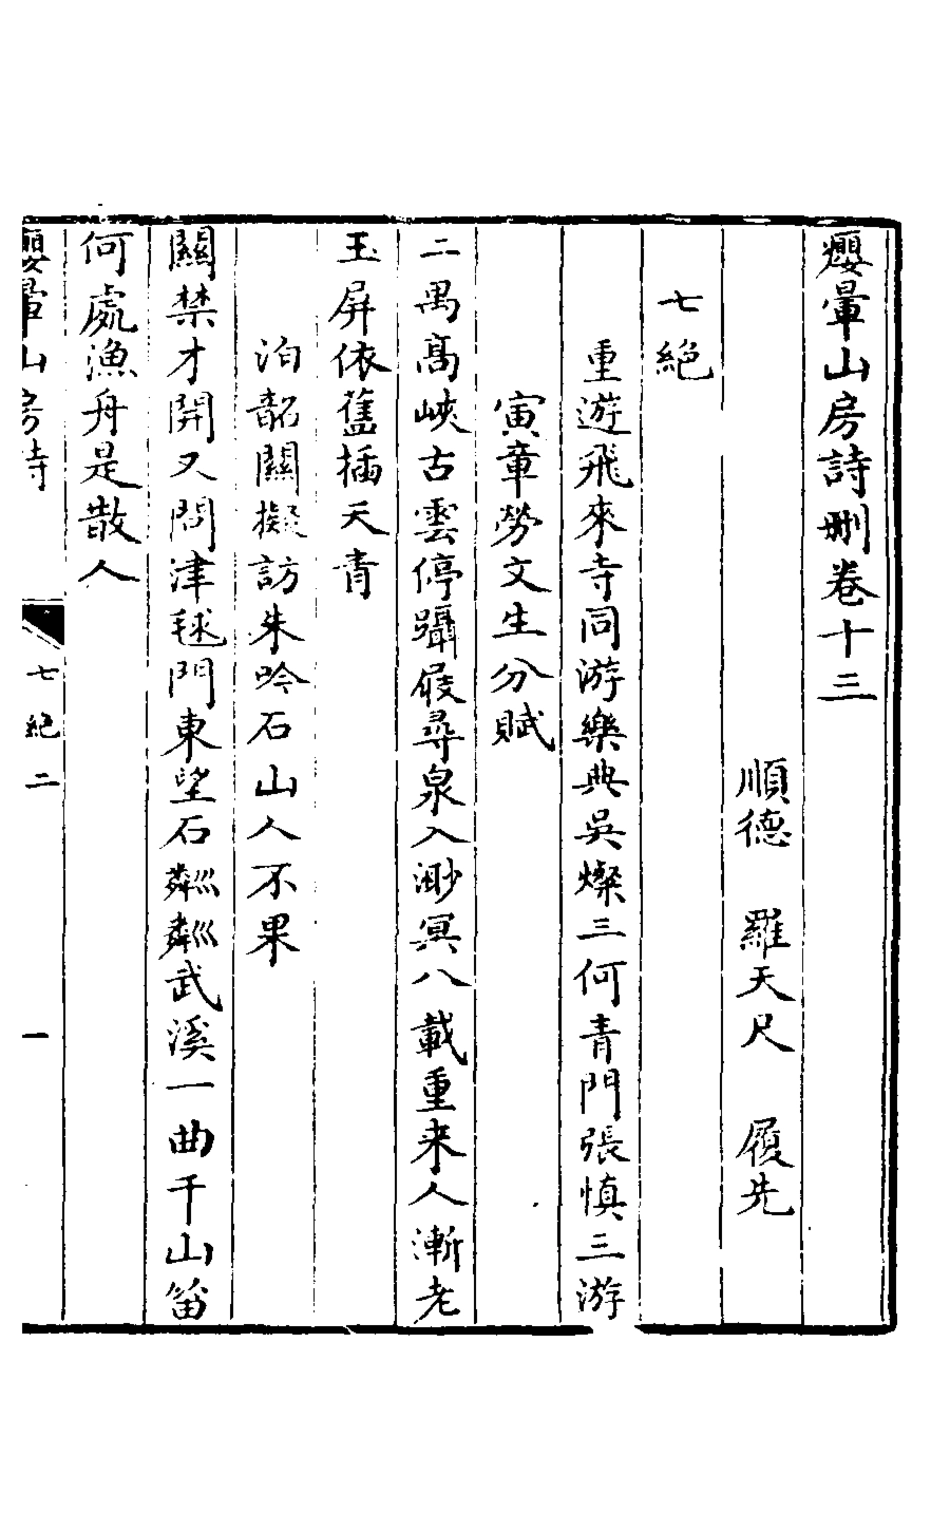 癭暈山房詩刪卷十三
順德　羅天尺　履先
七絕
重遊飛來寺同游樂典吳燦三何青門張慎三游
寅章勞文生分賦
二禺髙峽古雲停躡屐尋泉入渺冥八載重来人漸老
玉屏依舊插天青
泊韶關擬訪朱吟石山人不果
關禁才開又問津毬門東望石粼粼武溪一曲千山笛
何處漁舟是散人
癭暈山房詩　七絕二　一